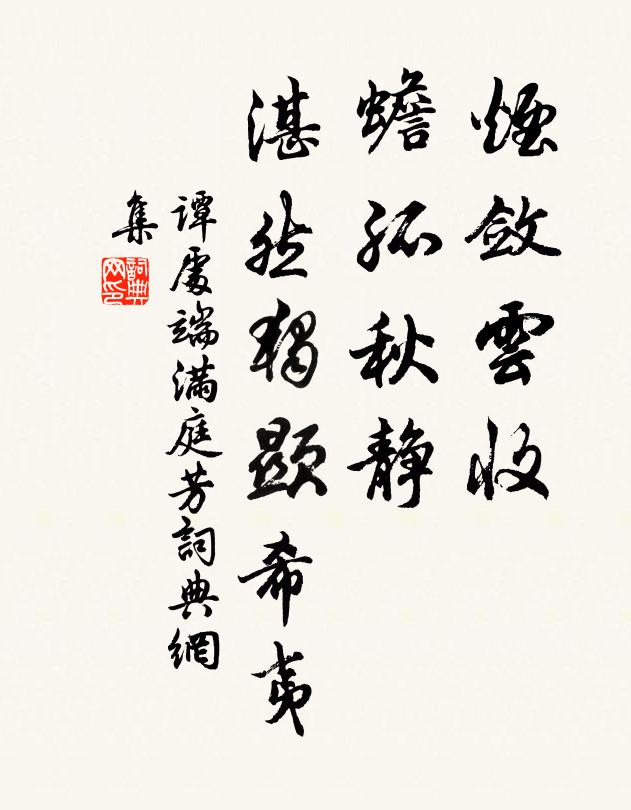 煙斂雲收
蟾孤秋靜
湛然獨顯希夷
譚處端滿庭芳詞典網
集
詞典
网印